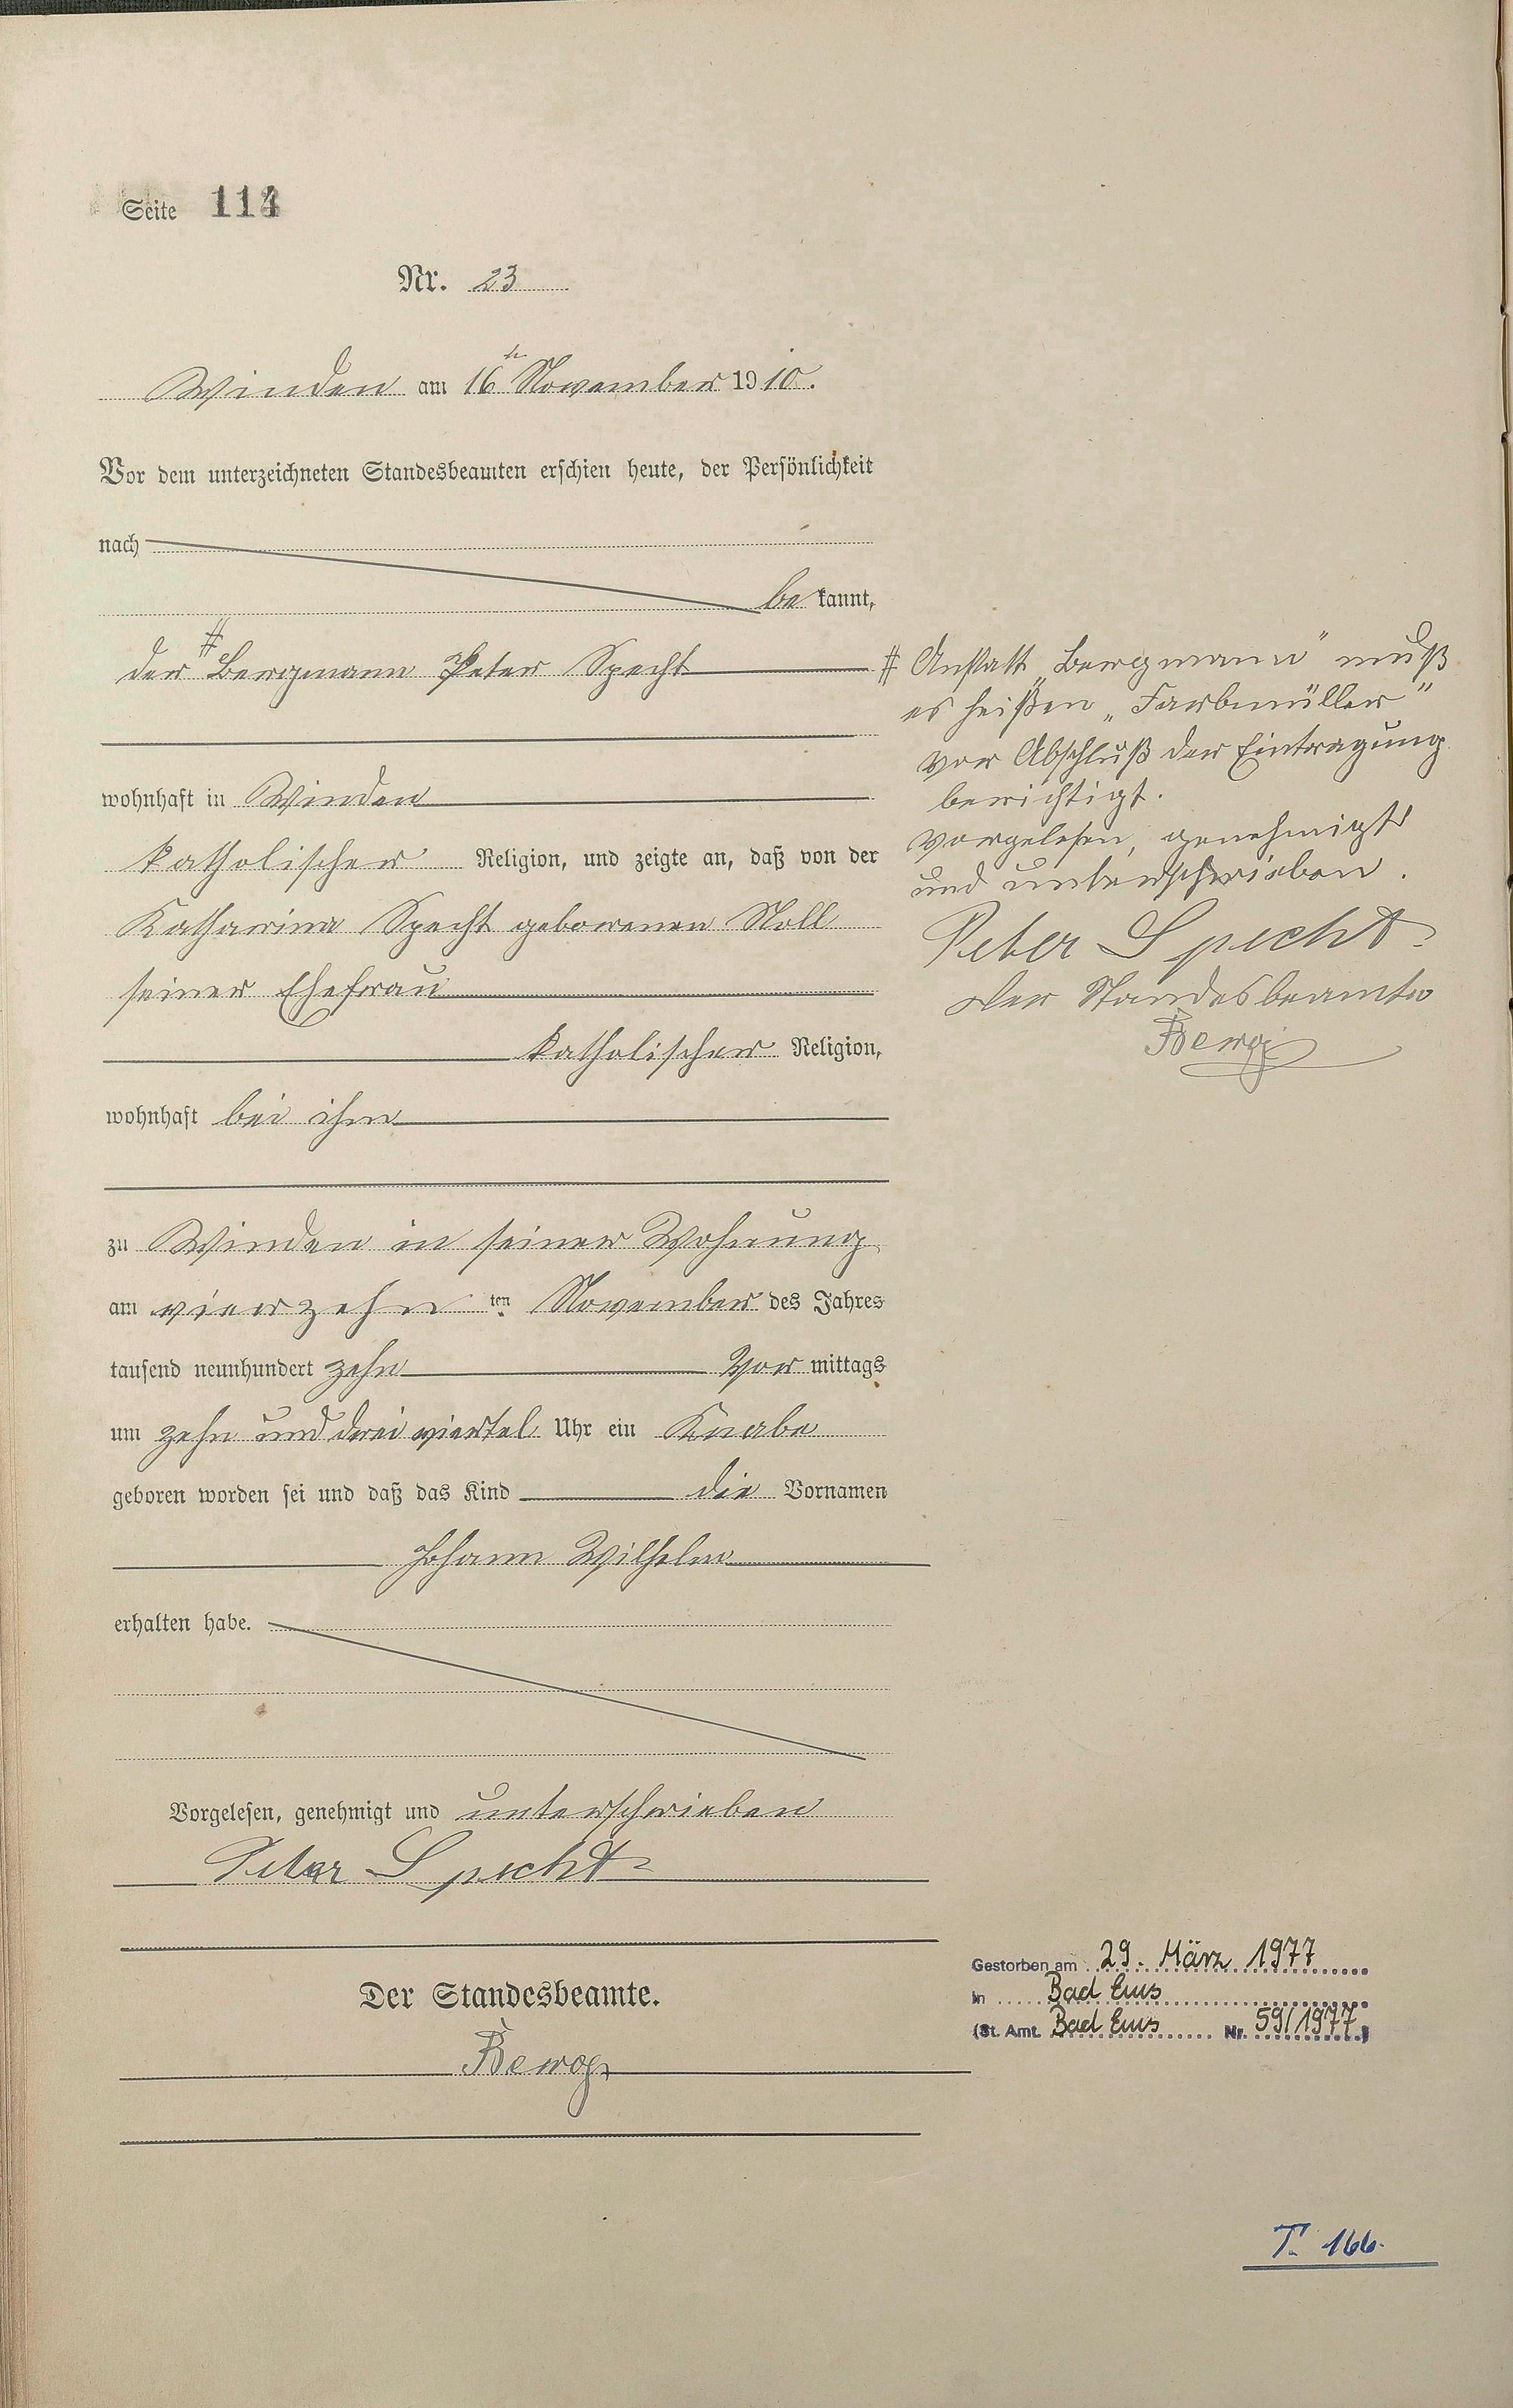 Seite 114
Nr. 23
Winden am 16ten November 1910.
Vor dem unterzeichneten Standesbeamten erschien heute, der Persönlichkeit
nach
be kannt,
der # Bergmann Peter Specht
wohnhaft in Winden
katholischer Religion, und zeigte an, daß von der
Katharina Specht geborenen Noll
seiner Ehefrau
katholischer Religion,
wohnhaft bei ihm
zu Winden in seiner Wohnung
am vierzehn ten November des Jahres
tausend neunhundert zehn Vor mittags
um zehn und drei viertel Uhr ein Knabe
geboren worden sei und daß das Kind die Vornamen
Johann Wilhelm
erhalten habe.
Vorgelesen, genehmigt und unterschrieben
Peter Specht
Der Standesbeamte.
Berg
# Anstatt „Bergmann" muß
es heißen „Farbmüller"
vor Abschluß der Eintragung
berichtigt.
vorgelesen, genehmigt
und unterschrieben.
Peter Specht
Der Standesbeamte
Berg
Gestorben am 29. März 1977
in Bad Ems
(St. Amt. Bad Ems Nr. 59/1977)
T. 166.